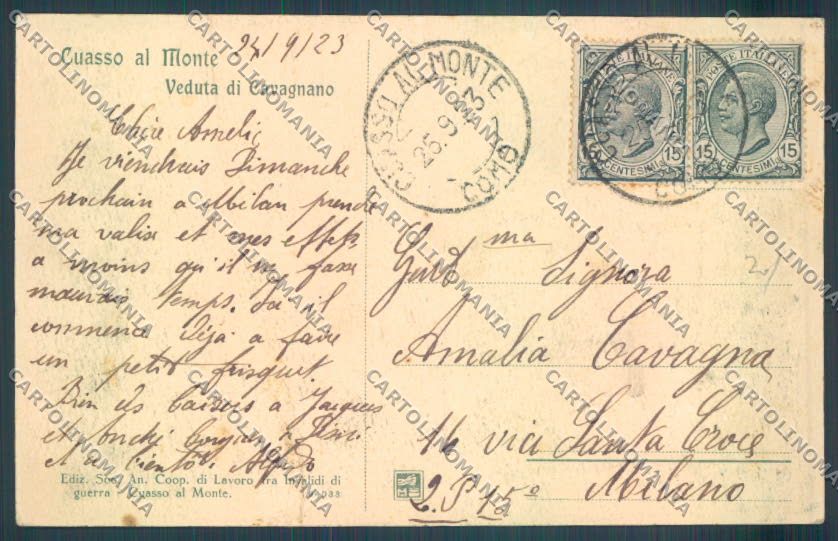 Cuasso al Monte 24/9/23
Veduta di Cavagnano
Chère Amelie
Je viendrais Dimanche
prochain a Milan prendre
ma valise et mes effets
a moins qu'il ne fasse
mauvais temps. Ici il
commence déja a faire
un petit frisquet.
Bien des baisers a Jacques
et
et a bientôt Alfredo
Ediz. Soc. An. Coop. di Lavoro fra Invalidi di
guerra - Cuasso al Monte.
CUASSO AL MONTE
25.9.23
COMO
POSTE ITALIANE
15
CENTESIMI
POSTE ITALIANE
15
15
CENTESIMI
Gent.ma Signora
Amalia Cavagna
16 via Santa Croce
Milano
2. P. 45°
CARTOLINOMANIA